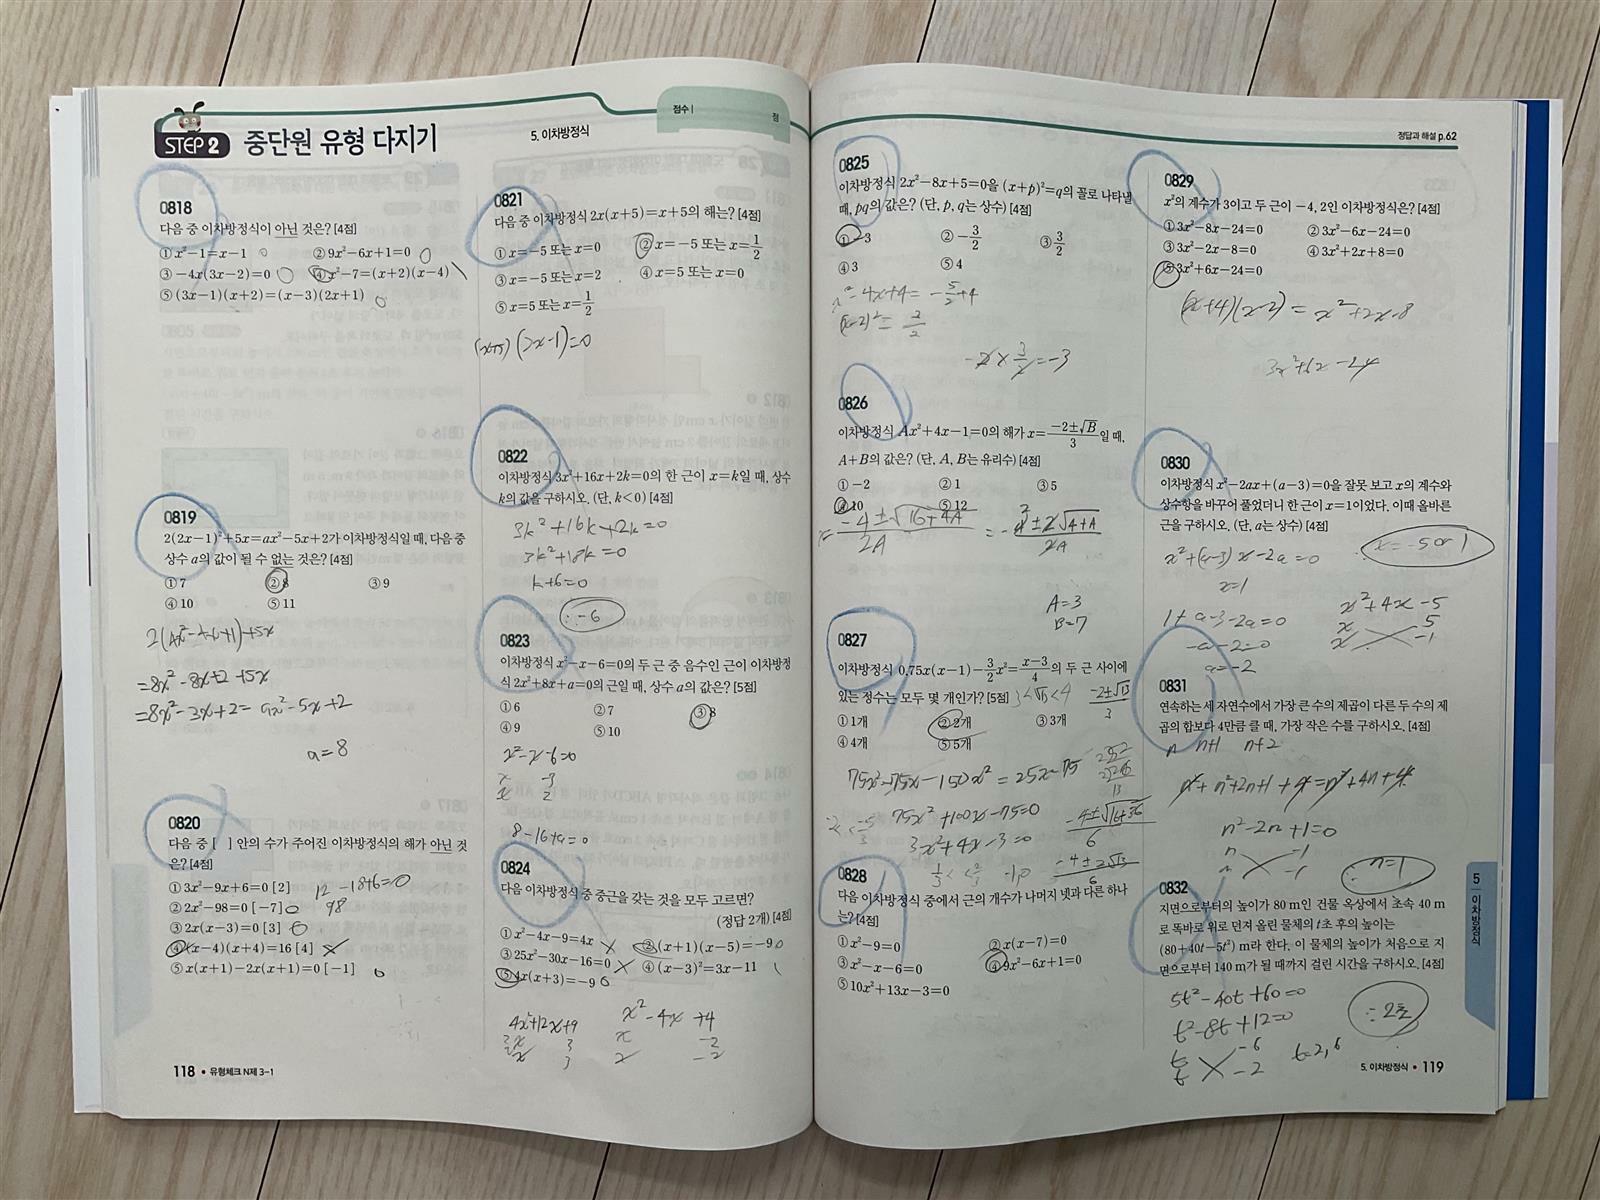 STEP 2 중단원 유형 다지기
5. 이차방정식
점수 | 점
0818
다음 중 이차방정식이 아닌 것은? [4점]
① x²-1=x-1 ② 9x²-6x+1=0
③ -4x(3x-2)=0 ④ x²-7=(x+2)(x-4)
⑤ (3x-1)(x+2)=(x-3)(2x+1)
0819
2(2x-1)²+5x=ax²-5x+2가 이차방정식일 때, 다음 중
상수 a의 값이 될 수 없는 것은? [4점]
① 7 ② 8 ③ 9
④ 10 ⑤ 11
2(4x²-4x+1)+5x
=8x²-8x+2+5x
=8x²-3x+2=ax²-5x+2
a=8
0820
다음 중 [ ] 안의 수가 주어진 이차방정식의 해가 아닌 것
은? [4점]
① 3x²-9x+6=0 [2] 12-18+6=0
② 2x²-98=0 [-7] 98
③ 2x(x-3)=0 [3]
④ (x-4)(x+4)=16 [4]
⑤ x(x+1)-2x(x+1)=0 [-1]
118 • 유형체크 N제 3-1
0821
다음 중 이차방정식 2x(x+5)=x+5의 해는? [4점]
① x=-5 또는 x=0 ② x=-5 또는 x=1/2
③ x=-5 또는 x=2 ④ x=5 또는 x=0
⑤ x=5 또는 x=1/2
(x+5)(2x-1)=0
0822
이차방정식 3x²+16x+2k=0의 한 근이 x=k일 때, 상수
k의 값을 구하시오. (단, k<0) [4점]
3k²+16k+2k=0
3k²+18k=0
k+6=0
∴ -6
0823
이차방정식 x²-x-6=0의 두 근 중 음수인 근이 이차방정
식 2x²+8x+a=0의 근일 때, 상수 a의 값은? [5점]
① 6 ② 7 ③ 8
④ 9 ⑤ 10
x²-x-6=0
x -3
x 2
8-16+a=0
0824
다음 이차방정식 중 중근을 갖는 것을 모두 고르면?
(정답 2개) [4점]
① x²-4x-9=4x ② (x+1)(x-5)=-9
③ 25x²-30x-16=0 ④ (x-3)²=3x-11
⑤ 4x(x+3)=-9
4x²+12x+9 x²-4x+4
2x 3 x -2
2x 3 x -2
정답과 해설 p.62
0825
이차방정식 2x²-8x+5=0을 (x+p)²=q의 꼴로 나타낼
때, pq의 값은? (단, p, q는 상수) [4점]
① -3 ② -3/2 ③ 3/2
④ 3 ⑤ 4
x²-4x+4=-5/2+4
(x-2)²=3/2
-2×3/2=-3
0826
이차방정식 Ax²+4x-1=0의 해가 x=(-2±√B)/3일 때,
A+B의 값은? (단, A, B는 유리수) [4점]
① -2 ② 1 ③ 5
④ 10 ⑤ 12
x=(-4±√16+4A)/2A = (-4±2√4+A)/2A
A=3
B=7
0827
이차방정식 0.75x(x-1)-3/2x²=(x-3)/4의 두 근 사이에
있는 정수는 모두 몇 개인가? [5점] 3<√13<4 (-2±√13)/3
① 1개 ② 2개 ③ 3개
④ 4개 ⑤ 5개
75x²-75x-150x²=25x-75
75x²+100x-75=0
3x²+4x-3=0
(-4±√16+36)/6
(-4±2√13)/6
0828
다음 이차방정식 중에서 근의 개수가 나머지 넷과 다른 하나
는? [4점]
① x²-9=0 ② x(x-7)=0
③ x²-x-6=0 ④ 9x²-6x+1=0
⑤ 10x²+13x-3=0
0829
x²의 계수가 3이고 두 근이 -4, 2인 이차방정식은? [4점]
① 3x²-8x-24=0 ② 3x²-6x-24=0
③ 3x²-2x-8=0 ④ 3x²+2x+8=0
⑤ 3x²+6x-24=0
(x+4)(x-2)=x²+2x-8
3x²+6x-24
0830
이차방정식 x²-2ax+(a-3)=0을 잘못 보고 x의 계수와
상수항을 바꾸어 풀었더니 한 근이 x=1이었다. 이때 올바른
근을 구하시오. (단, a는 상수) [4점]
∴ x=-5 or 1
x²+(a-3)x-2a=0
x=1
1+a-3-2a=0
-a-2=0
a=-2
x²+4x-5
x 5
x -1
0831
연속하는 세 자연수에서 가장 큰 수의 제곱이 다른 두 수의 제
곱의 합보다 4만큼 클 때, 가장 작은 수를 구하시오. [4점]
n n+1 n+2
n²+n²+2n+1+4=n²+4n+4
n²-2n+1=0
n -1
n -1
∴ n=1
0832
지면으로부터의 높이가 80 m인 건물 옥상에서 초속 40 m
로 똑바로 위로 던져 올린 물체의 t초 후의 높이는
(80+40t-5t²) m라 한다. 이 물체의 높이가 처음으로 지
면으로부터 140 m가 될 때까지 걸린 시간을 구하시오. [4점]
5t²-40t+60=0
t²-8t+12=0
t -6
t -2
t=2, 6
∴ 2초
5 이차방정식
5. 이차방정식 • 119